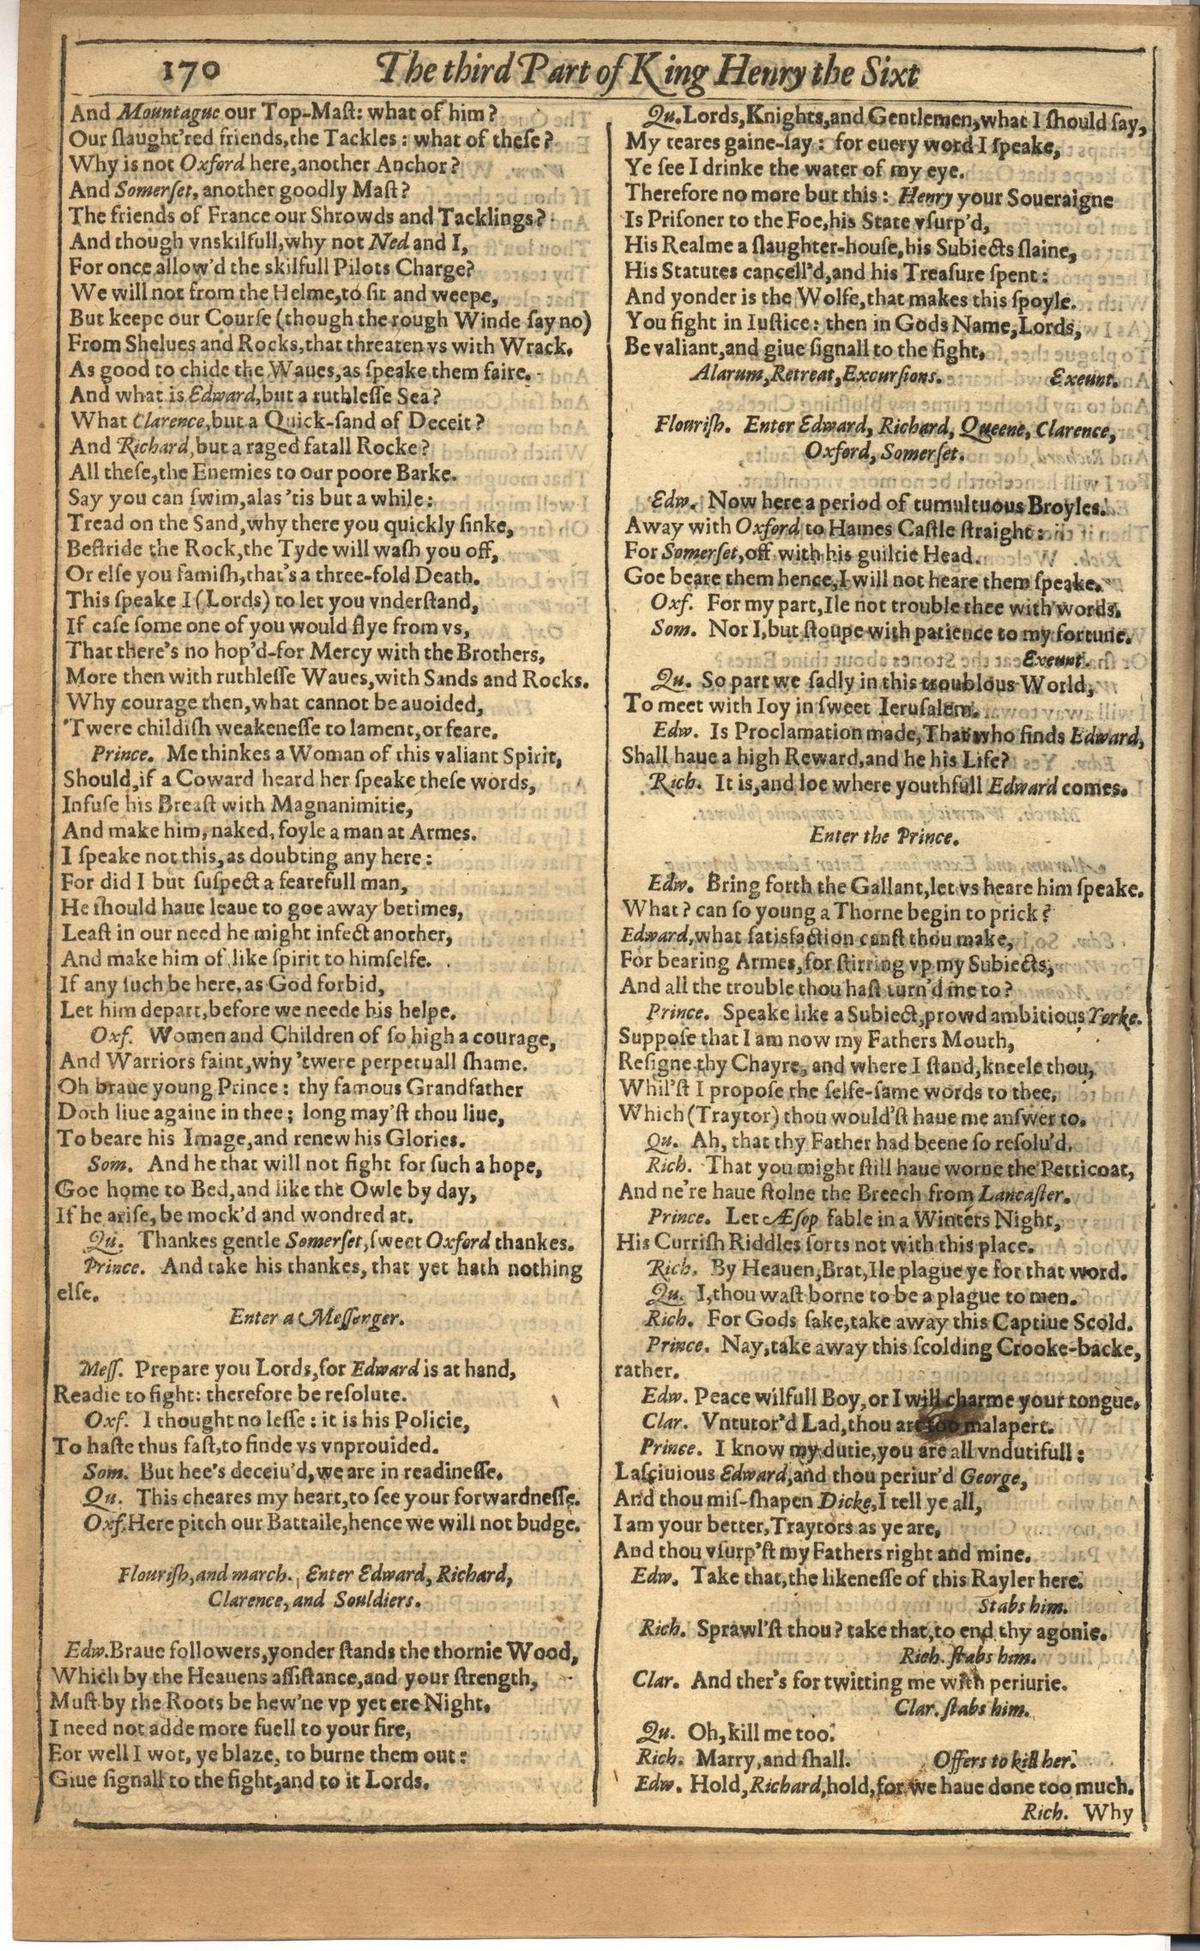 170 The third Part of King Henry the Sixt
And Mountague our Top-Maſt: what of him?
Our ſlaught'red friends,the Tackles: what of theſe?
Why is not Oxford here,another Anchor?
And Somerſet, another goodly Maſt?
The friends of France our Shrowds and Tacklings?
And though vnskilfull,why not Ned and I,
For once,allow'd the skilfull Pilots Charge?
We will not from the Helme,to ſit and weepe,
But keepe our Courſe (though the rough Winde ſay no)
From Shelues and Rocks,that threaten vs with Wrack.
As good to chide the Waues,as ſpeake them faire.
And what is Edward,but a ruthleſſe Sea?
What Clarence,but a Quick-ſand of Deceit?
And Richard,but a raged fatall Rocke?
All theſe,the Enemies to our poore Barke.
Say you can ſwim,alas 'tis but a while:
Tread on the Sand,why there you quickly ſinke,
Beſtride the Rock,the Tyde will waſh you off,
Or elſe you famiſh,that's a three-fold Death.
This ſpeake I (Lords) to let you vnderſtand,
If caſe ſome one of you would flye from vs,
That there's no hop'd-for Mercy with the Brothers,
More then with ruthleſſe Waues,with Sands and Rocks.
Why courage then,what cannot be auoided,
'Twere childiſh weakeneſſe to lament,or feare.
Prince. Me thinkes a Woman of this valiant Spirit,
Should,if a Coward heard her ſpeake theſe words,
Infuſe his Breaſt with Magnanimitie,
And make him, naked, foyle a man at Armes.
I ſpeake not this,as doubting any here:
For did I but ſuſpect a fearefull man,
He ſhould haue leaue to goe away betimes,
Leaſt in our need he might infect another,
And make him of like ſpirit to himſelfe.
If any ſuch be here,as God forbid,
Let him depart,before we neede his helpe.
Oxf. Women and Children of ſo high a courage,
And Warriors faint,why 'twere perpetuall ſhame.
Oh braue young Prince: thy famous Grandfather
Doth liue againe in thee; long may'ſt thou liue,
To beare his Image,and renew his Glories.
Som. And he that will not fight for ſuch a hope,
Goe home to Bed,and like the Owle by day,
If he ariſe, be mock'd and wondred at.
Qu. Thankes gentle Somerſet,ſweet Oxford thankes.
Prince. And take his thankes, that yet hath nothing
elſe.
Enter a Meſſenger.
Meſſ. Prepare you Lords,for Edward is at hand,
Readie to fight: therefore be reſolute.
Oxf. I thought no leſſe: it is his Policie,
To haſte thus faſt,to finde vs vnprouided.
Som. But hee's deceiu'd,we are in readineſſe.
Qu. This cheares my heart,to ſee your forwardneſſe.
Oxf.Here pitch our Battaile,hence we will not budge.
Flouriſh,and march. Enter Edward, Richard,
Clarence, and Souldiers.
Edw.Braue followers,yonder ſtands the thornie Wood,
Which by the Heauens aſſiſtance,and your ſtrength,
Muſt by the Roots be hew'ne vp yet ere Night.
I need not adde more fuell to your fire,
For well I wot, ye blaze, to burne them out:
Giue ſignall to the fight,and to it Lords.
Qu.Lords,Knights,and Gentlemen,what I ſhould ſay,
My teares gaine-ſay: for euery word I ſpeake,
Ye ſee I drinke the water of my eye.
Therefore no more but this: Henry your Soueraigne
Is Priſoner to the Foe,his State vſurp'd,
His Realme a ſlaughter-houſe,his Subiects ſlaine,
His Statutes cancell'd,and his Treaſure ſpent:
And yonder is the Wolfe,that makes this ſpoyle.
You fight in Iuſtice: then in Gods Name,Lords,
Be valiant,and giue ſignall to the fight.
Alarum,Retreat,Excurſions. Exeunt.
Flouriſh. Enter Edward, Richard, Queene, Clarence,
Oxford, Somerſet.
Edw. Now here a period of tumultuous Broyles.
Away with Oxford to Hames Caſtle ſtraight:
For Somerſet,off with his guiltie Head.
Goe beare them hence,I will not heare them ſpeake.
Oxf. For my part,Ile not trouble thee with words.
Som. Nor I,but ſtoupe with patience to my fortune.
Exeunt.
Qu. So part we ſadly in this troublous World,
To meet with Ioy in ſweet Ieruſalem.
Edw. Is Proclamation made,That who finds Edward,
Shall haue a high Reward,and he his Life?
Rich. It is,and loe where youthfull Edward comes.
Enter the Prince.
Edw. Bring forth the Gallant,let vs heare him ſpeake.
What? can ſo young a Thorne begin to prick?
Edward,what ſatisfaction canſt thou make,
For bearing Armes,for ſtirring vp my Subiects,
And all the trouble thou haſt turn'd me to?
Prince. Speake like a Subiect,prowd ambitious Yorke.
Suppoſe that I am now my Fathers Mouth,
Reſigne thy Chayre, and where I ſtand,kneele thou,
Whil'ſt I propoſe the ſelfe-ſame words to thee,
Which (Traytor) thou would'ſt haue me anſwer to.
Qu. Ah, that thy Father had beene ſo reſolu'd.
Rich. That you might ſtill haue worne the Petticoat,
And ne're haue ſtolne the Breech from Lancaſter.
Prince. Let Æſop fable in a Winters Night,
His Curriſh Riddles ſorts not with this place.
Rich. By Heauen,Brat,Ile plague ye for that word.
Qu. I,thou waſt borne to be a plague to men.
Rich. For Gods ſake,take away this Captiue Scold.
Prince. Nay,take away this ſcolding Crooke-backe,
rather.
Edw. Peace wilfull Boy,or I will charme your tongue.
Clar. Vntutor'd Lad,thou art too malapert.
Prince. I know my dutie,you are all vndutifull:
Laſciuious Edward,and thou periur'd George,
And thou miſ-ſhapen Dicke,I tell ye all,
I am your better,Traytors as ye are,
And thou vſurp'ſt my Fathers right and mine.
Edw. Take that,the likeneſſe of this Rayler here.
Stabs him.
Rich. Sprawl'ſt thou? take that,to end thy agonie.
Rich. ſtabs him.
Clar. And ther's for twitting me with periurie.
Clar. ſtabs him.
Qu. Oh,kill me too.
Rich. Marry,and ſhall. Offers to kill her.
Edw. Hold,Richard,hold,for we haue done too much.
Rich. Why